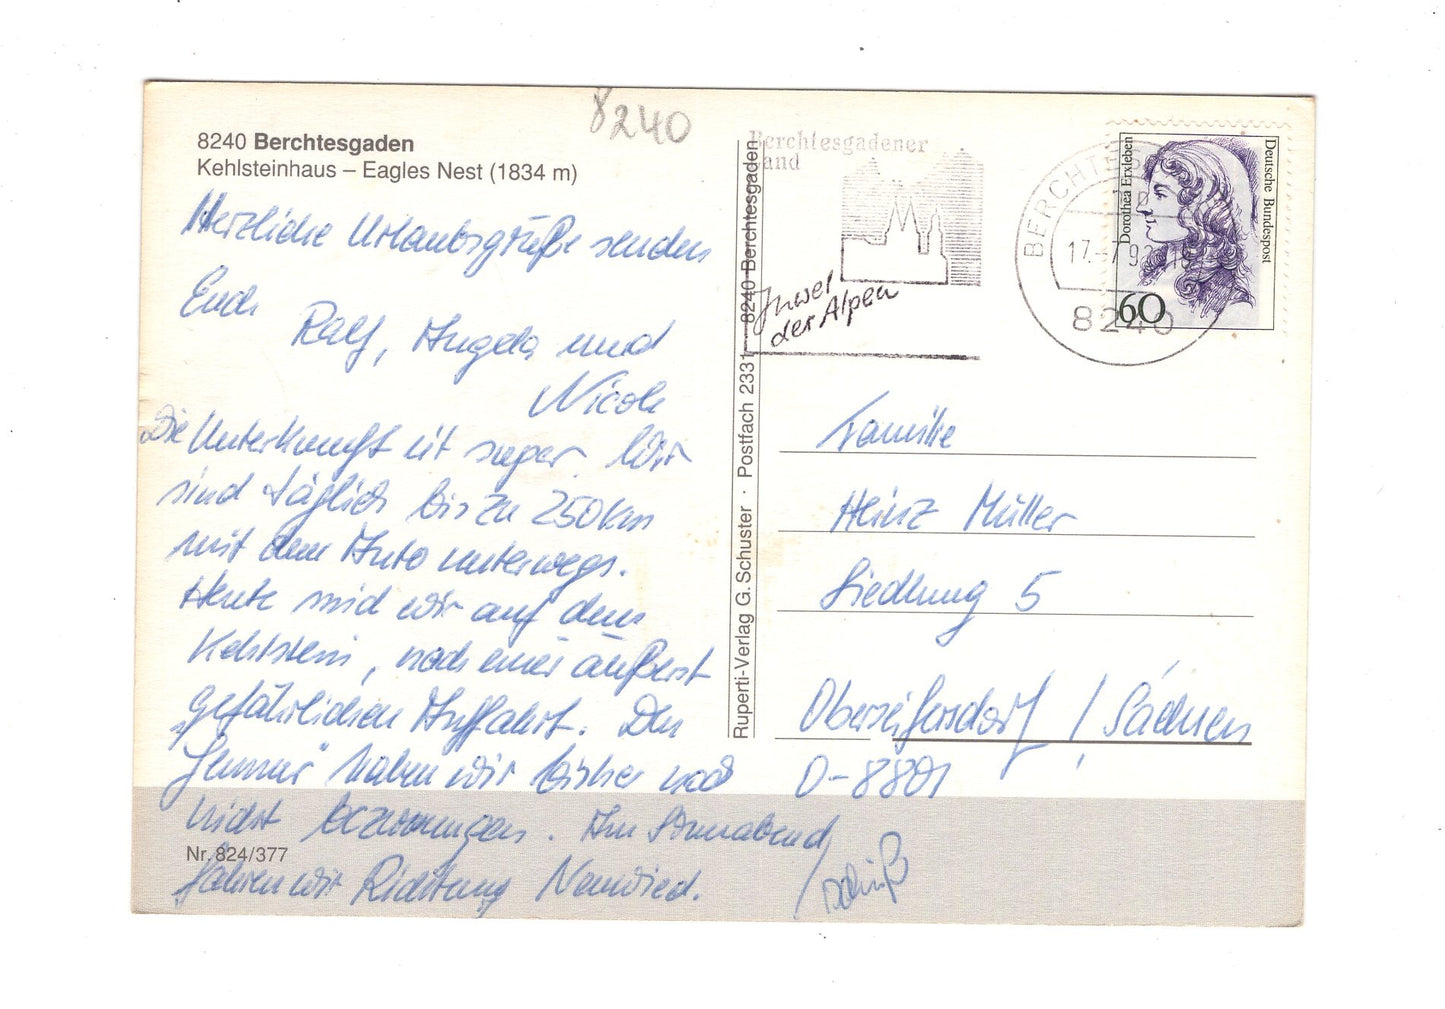 8240
8240 Berchtesgaden
Kehlsteinhaus – Eagles Nest (1834 m)
Herzliche Urlaubsgrüße senden
Euch
Ralf, Angela und
Nicole
Die Unterkunft ist super. Wir
sind täglich bis zu 250 km
mit dem Auto unterwegs.
Heute sind wir auf dem
Kehlstein, nach einer äußerst
gefährlichen Auffahrt. Den
„Jenner" haben wir bisher noch
nicht bezwungen. Am Sonnabend
fahren wir Richtung Neuwied.
Nr. 824/377
Tschüß
Ruperti-Verlag G. Schuster · Postfach 2331 – 8240 Berchtesgaden
Berchtesgadener
Land
Juwel
der Alpen
BERCHTES
17.-7.9
8240
Dorothea Erxleben
Deutsche Bundespost
60
Familie
Heinz Müller
Siedlung 5
Oberseifersdorf / Sachsen
O-8801